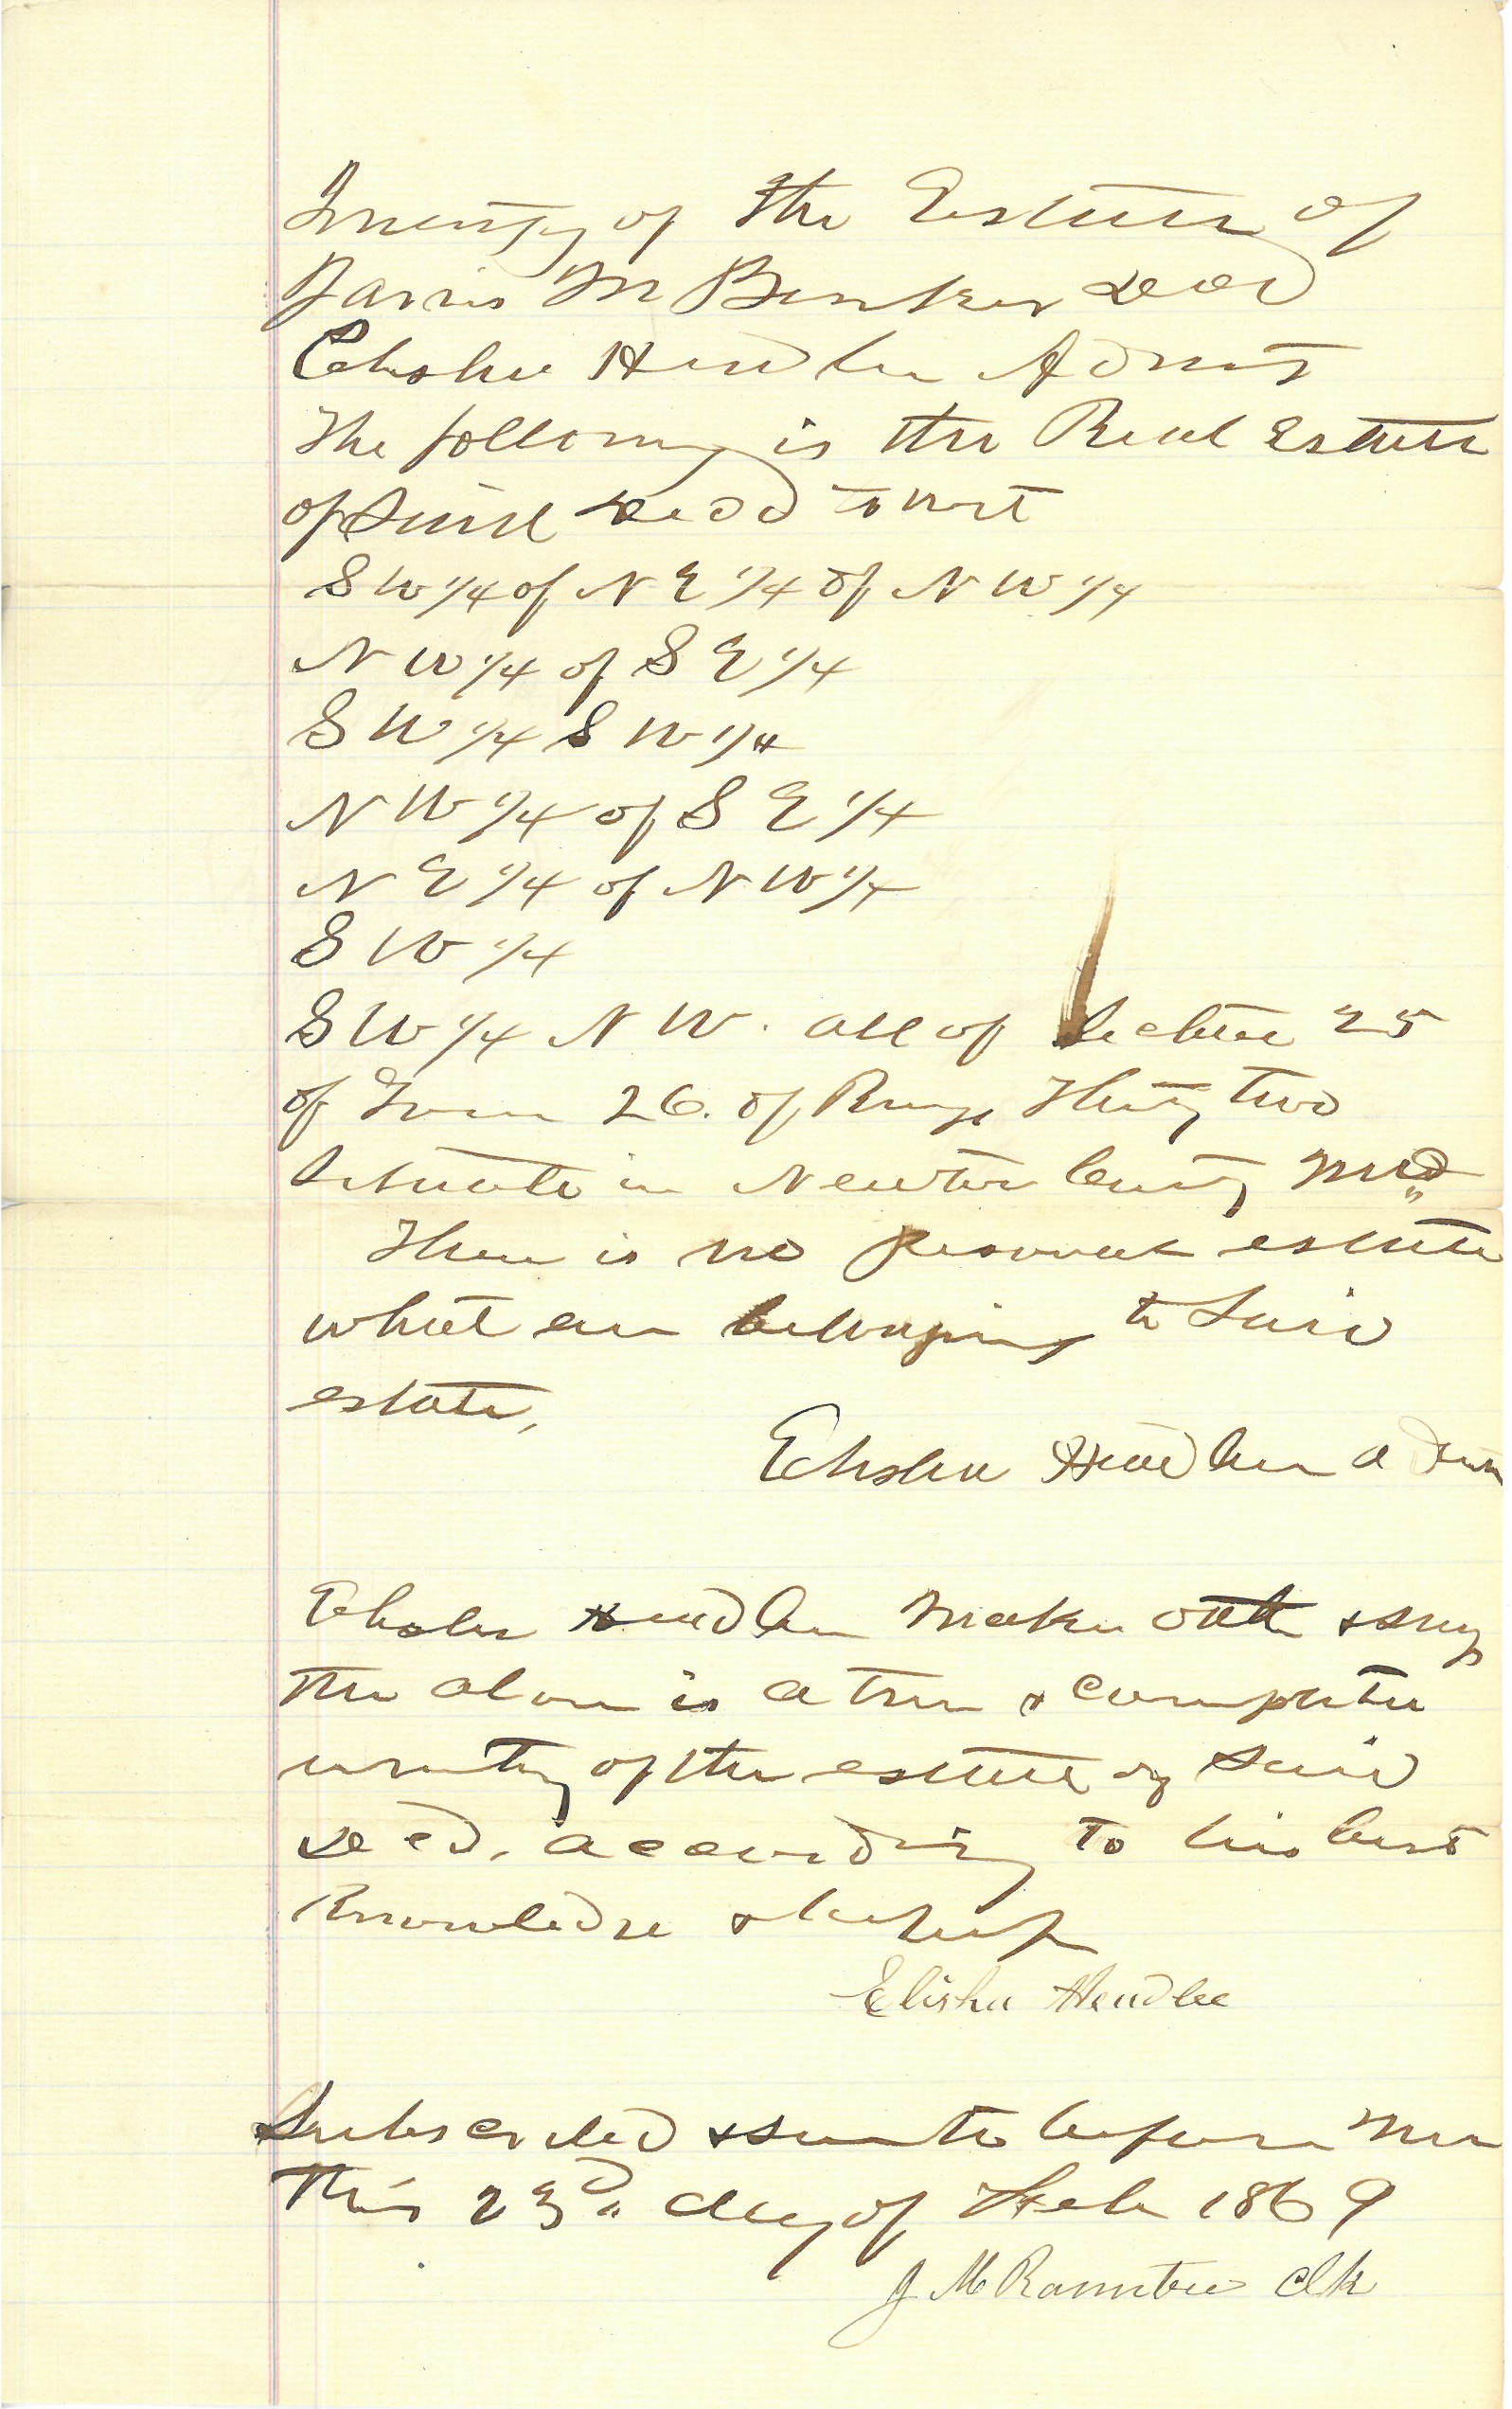 Inventory of the Estate of
Jarvis M Bunker decd
Elisha Hendlee Admr
The following is the Real Estate
of said decd to wit
S W 1/4 of N E 1/4 of N W 1/4
N W 1/4 of S E 1/4
S W 1/4 S W 1/4
N W 1/4 of S E 1/4
N E 1/4 of N W 1/4
S W 1/4
S W 1/4 N W. all of Section 25
of Town 26. of Range Thirty two
situate in Newton County
There is no personal estate
what ever belonging to said
estate,
Elisha Hendlee adm
Elisha Hendlee makes oath & says
the above is a true & complete
inventy of the estate of said
decd. according to his best
Knowledge & belief
Elisha Hendlee
Subscribed & sworn to before me
this 23d" day of Feb 1869
J M Rountree Clk